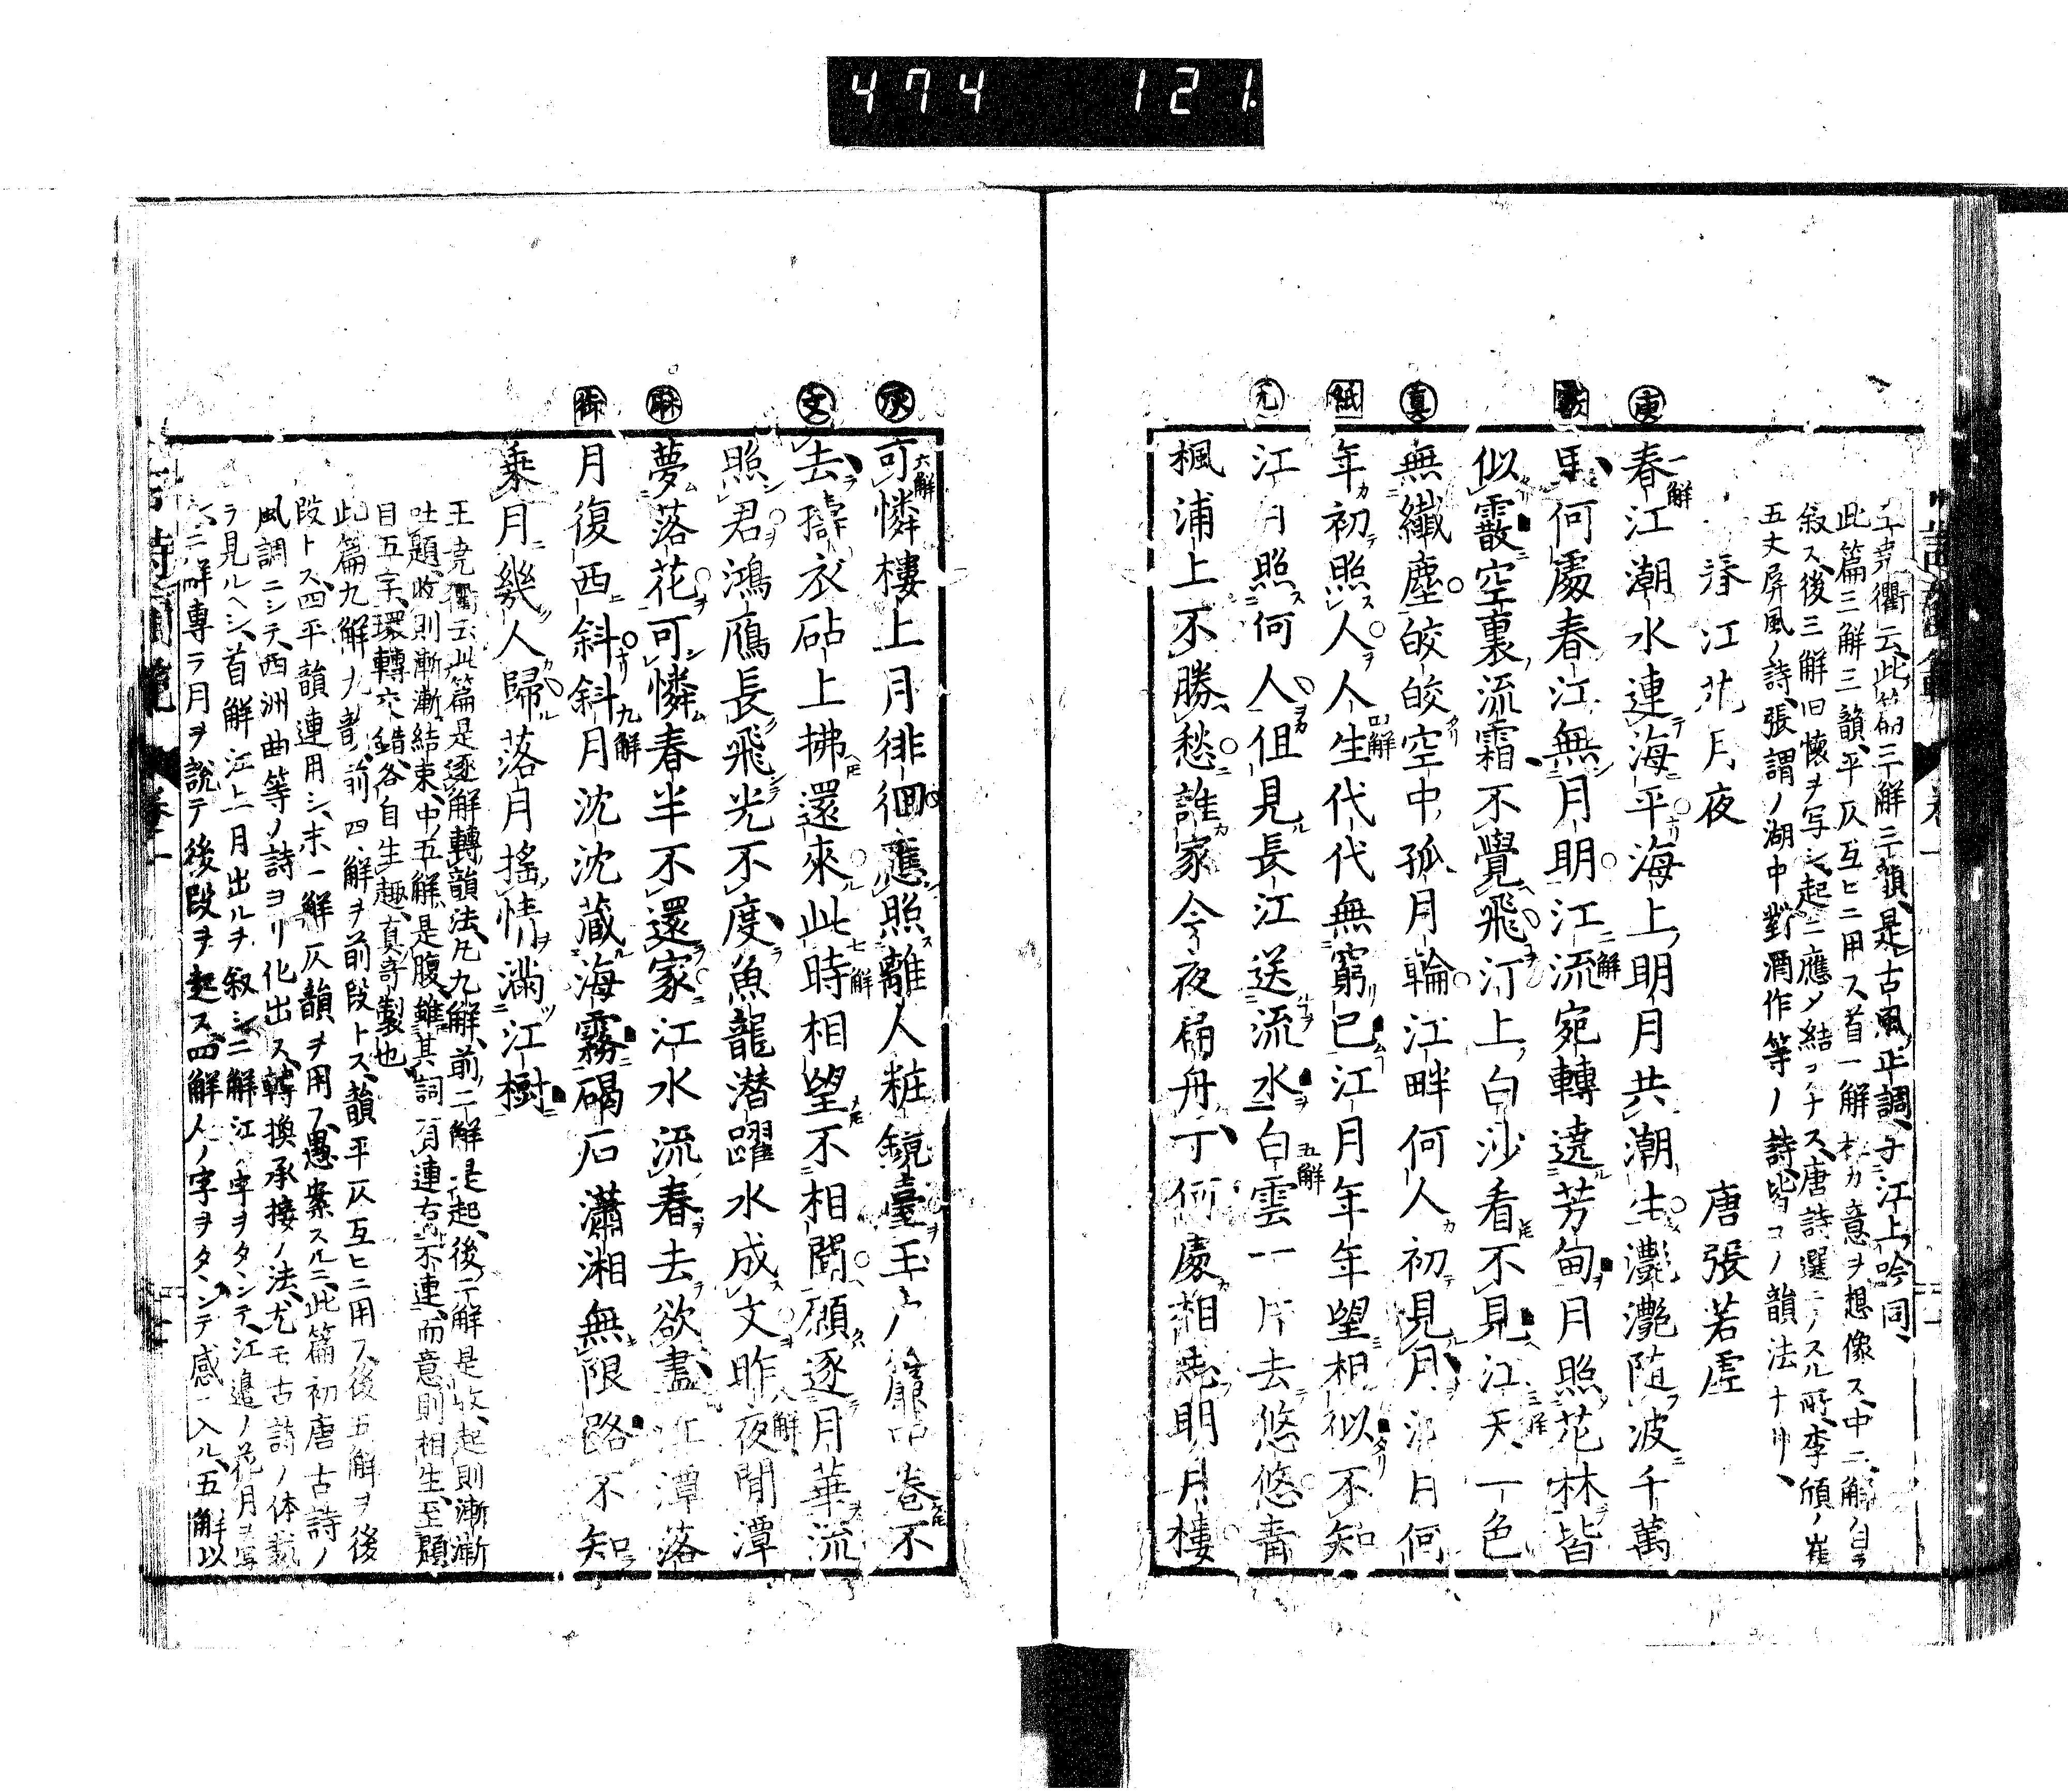 474 121.
王堯衢云此篇三解三韻是古風正調子江上吟同
此篇三解三韻平仄互ヒニ用ス首一解
カ意ヲ想像ス中二解ノ自ラ
叙ス後三解旧懐ヲ写シ起ニ應メ結
ナス唐詩選ニノスル所李頎ノ崔
五丈屏風ノ詩張謂ノ湖中對酒作等ノ詩皆コノ韻法ナリ
春江花月夜 唐張若虚
庚 一解 春江潮水連海平海上明月共潮生灔灔随波千萬
霰 里何處春江無月明 二解 江流宛轉遶芳甸月照花林皆
似霰空裏流霜不覺飛汀上白沙看不見 三解 江天一色
真 無纖塵皎皎空中孤月輪江畔何人初見月江月何
紙 年初照人 四解 人生代代無窮已江月年年望相似不知
尤 江月照何人但見長江送流水 五解 白雲一片去悠悠青
楓浦上不勝愁誰家今夜扁舟子何處相思明月樓
灰 六解 可憐樓上月徘徊應照離人粧鏡臺玉戶簾中卷不
文 去擣衣砧上拂還來 七解 此時相望不相聞願逐月華流
照君鴻鴈長飛光不度魚龍潛躍水成文 八解 昨夜閒潭
麻 夢落花可憐春半不還家江水流春去欲盡江潭落
月復西斜 九解 斜月沈沈蔵海霧碣石瀟湘無限路不知
乘月幾人歸落月搖情滿江樹
王堯衢云此篇是逐解轉韻法凡九解前二解是起後二解是收起則漸漸
吐題收則漸漸結束中五解是腹雖其詞有連有不連而意則相生至題
目五字環轉交錯各自生趣真奇製也
此篇九解九韻前四解ヲ前段トス韻平仄互ヒニ用フ後五解ヲ後
段トス四平韻連用シ末一解仄韻ヲ用フ愚案スルニ此篇初唐古詩ノ
風調ニシテ西洲曲等ノ詩ヨリ化出ス轉換承接ノ法尤モ古詩ノ体裁
ラ見ルヘシ首解江上月出ルヲ叙シ二解江ノ字ヲタンテ江邉ノ花月ヲ写
シ三解専ラ月ヲ說テ後段ヲ起ス四解人ノ字ヲタンテ感ニ入ル五解以